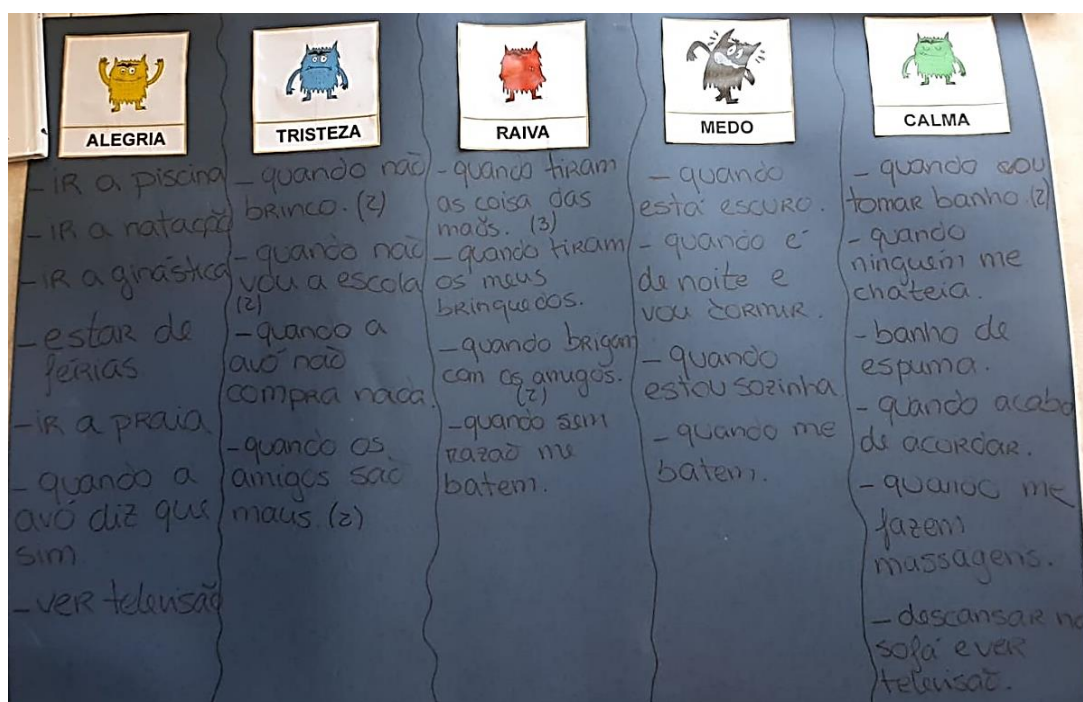 ALEGRIA
- IR a piscina
- IR a natação
- IR a ginástica
- estar de
férias
- iR a praia
- quando a
avó diz que
sim
- ver televisão
TRISTEZA
- quando não
brinco. (2)
- quando não
vou a escola
(2)
- quando a
avó não
compra nada.
- quando os
amigos são
maus. (2)
RAIVA
- quando tiram
as coisa das
maõs. (3)
- quando tiram
os meus
brinquedos.
- quando brigam
com os amigos.
(2)
- quando sem
razaõ me
batem.
MEDO
- quando
está escuro.
- quando é
de noite e
vou dormir.
- quando
estou sozinha
- quando me
batem.
CALMA
- quando vou
tomar banho. (2)
- quando
ninguém me
chateia.
- banho de
espuma.
- quando acabo
de acordar.
- quando me
fazem
massagens.
- descansar no
sofá e ver
televisaõ.